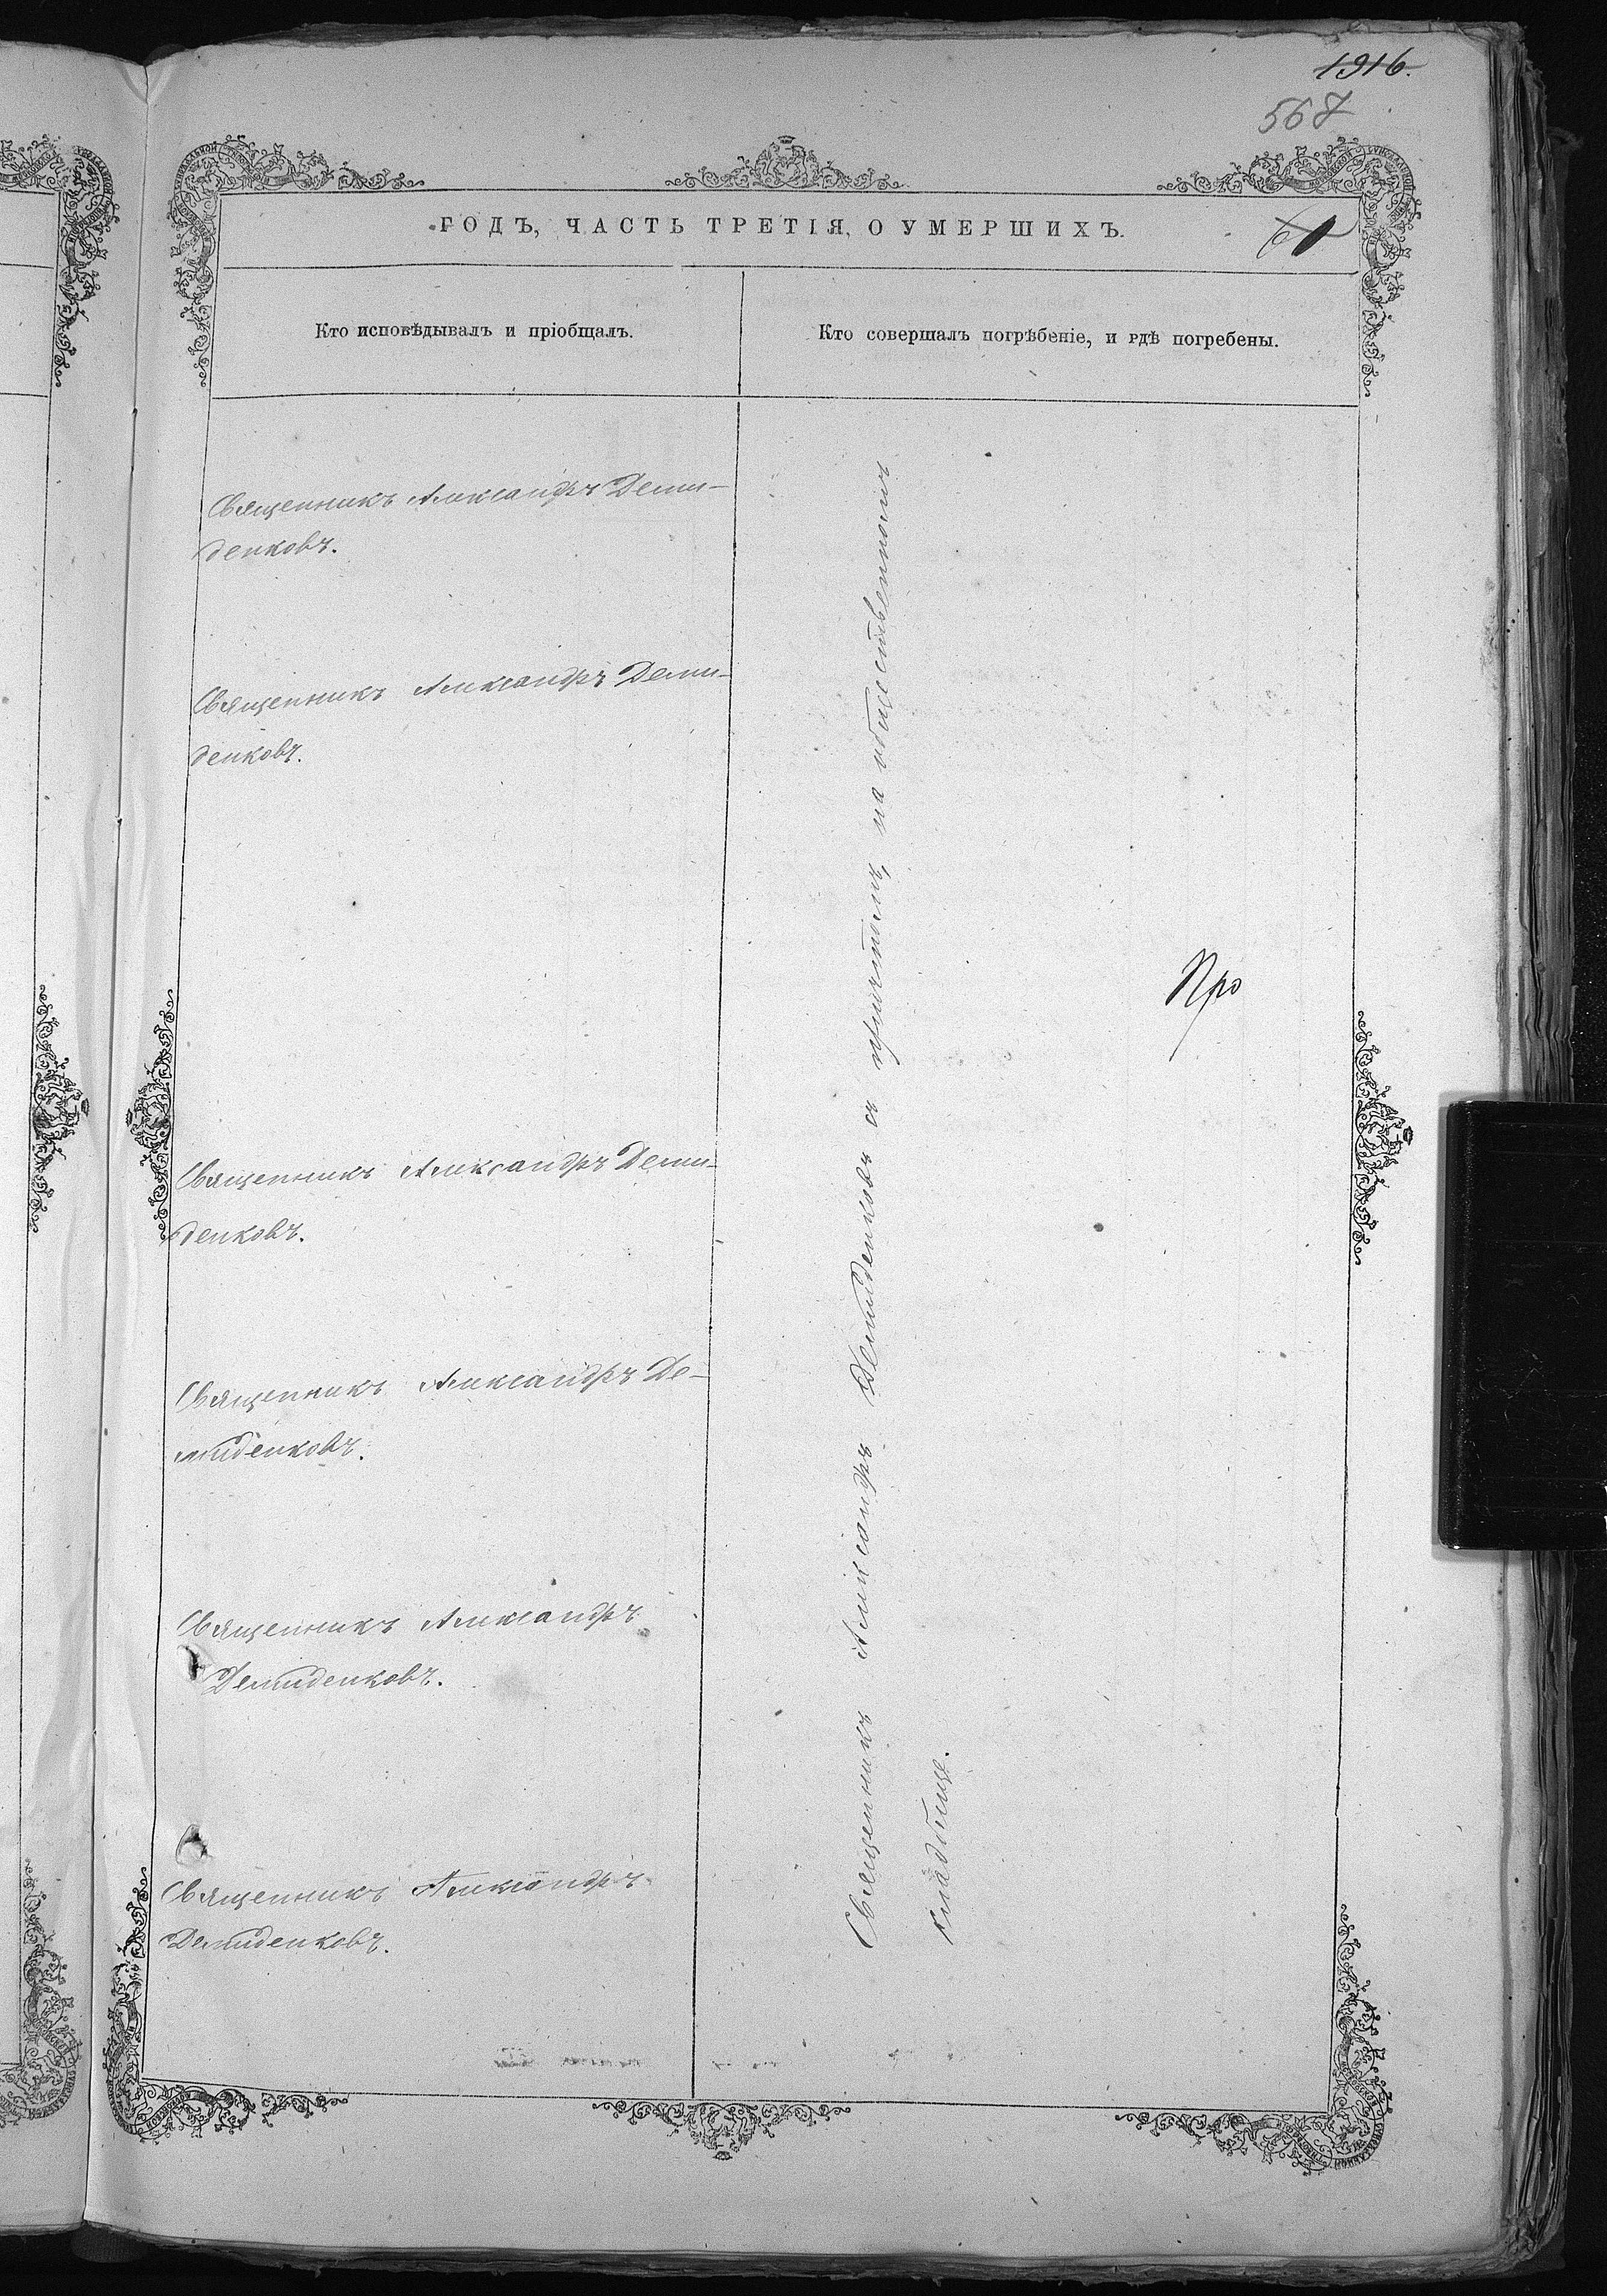 1916.
567
ГОДЪ, ЧАСТЬ ТРЕТІЯ, О УМЕРШИХЪ.
Кто исповѣдывалъ и пріобщалъ.
Кто совершалъ погрѣбеніе, и гдѣ погребены.
Священникъ Александръ Деми-
денковъ.
Священникъ Александръ Деми-
денковъ.
Священникъ Александръ Деми-
денковъ.
Священникъ Александръ Де-
миденковъ.
Священникъ Александръ
Демиденковъ.
Священникъ Александръ
Демиденковъ.
Священникъ Александръ Демиденковъ съ причтомъ, на общественномъ
кладбище.
Про